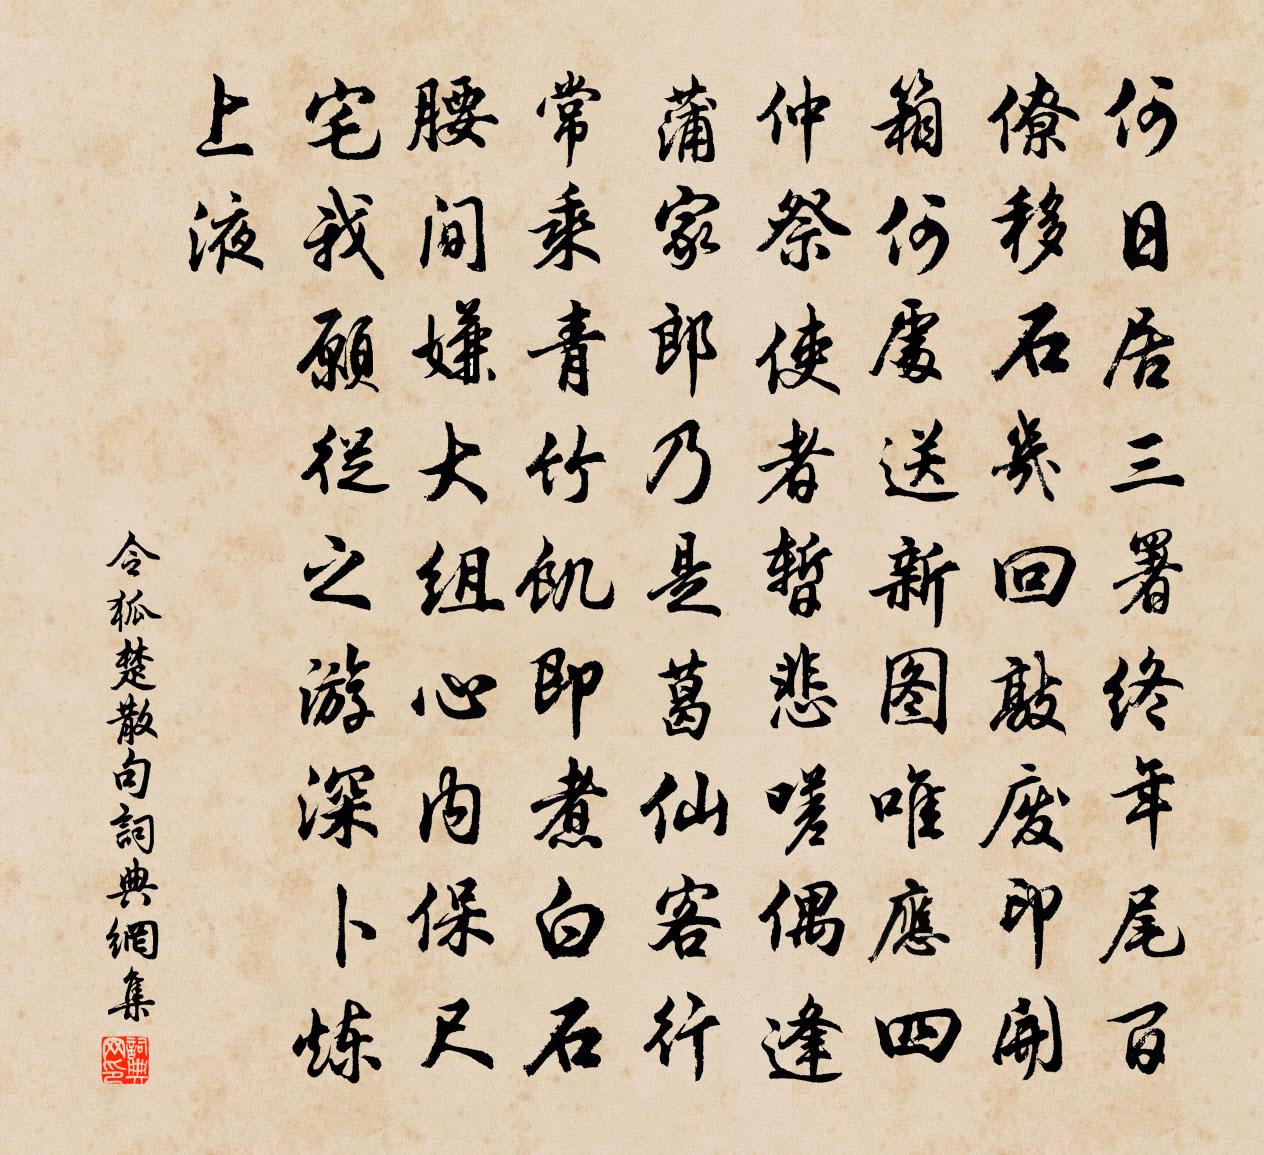 何日居三署终年尾百
僚移石幾回敲废印開
箱何處送新图唯應四
仲祭使者暫悲嗟偶逢
蒲家郎乃是葛仙客行
常乘青竹飢即煮白石
腰间嫌大组心内保尺
宅我願從之游深卜炼
上液
令狐楚散句詞典網集
詞典网印